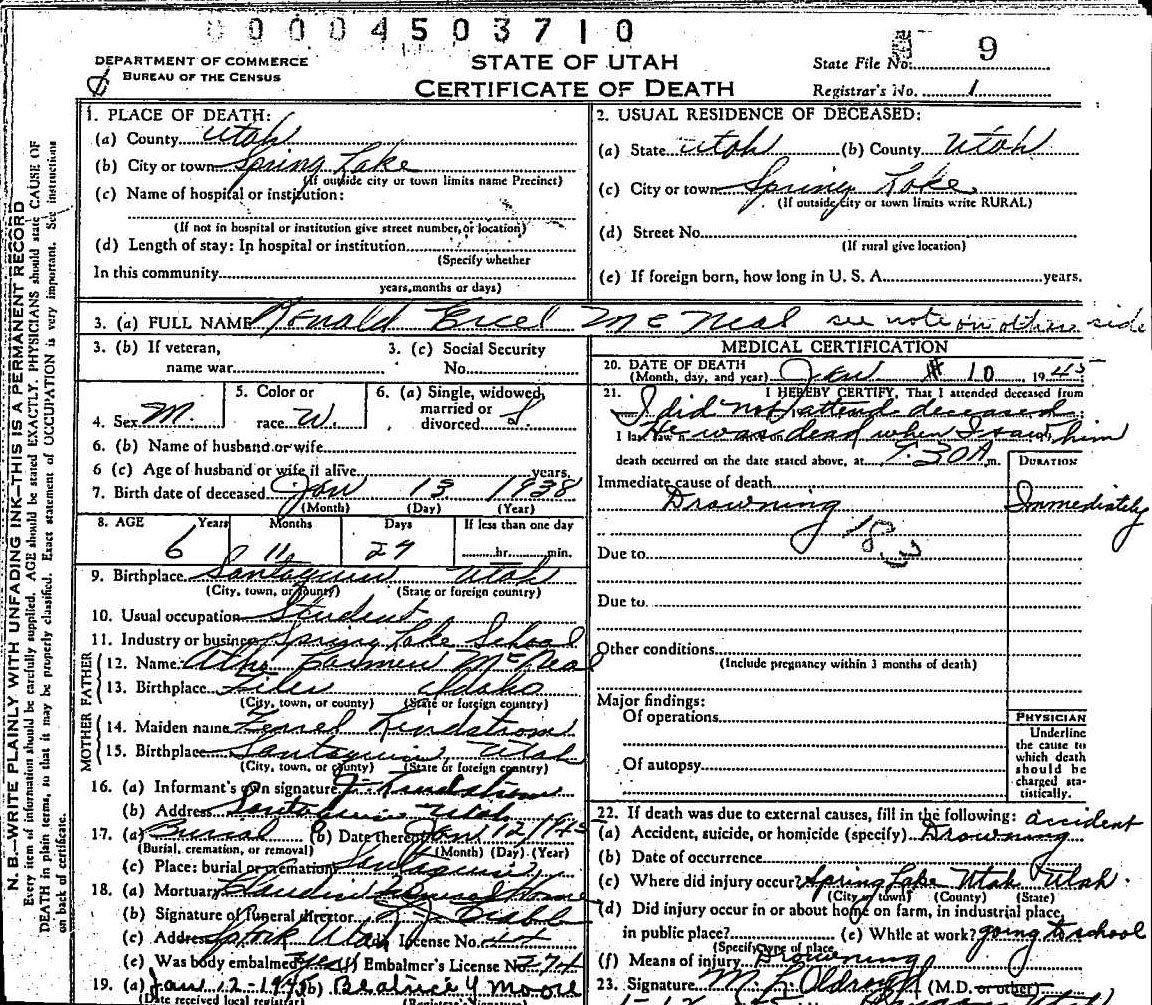 00004503710
DEPARTMENT OF COMMERCE
BUREAU OF THE CENSUS
STATE OF UTAH
CERTIFICATE OF DEATH
State File No. 9
Registrar's No. 1
N. B.—WRITE PLAINLY WITH UNFADING INK—THIS IS A PERMANENT RECORD
Every item of information should be carefully supplied. AGE should be stated EXACTLY. PHYSICIANS should state CAUSE OF
DEATH in plain terms, so that it may be properly classified. Exact statement of OCCUPATION is very important. See instructions
on back of certificate.
1. PLACE OF DEATH:
(a) County Utah
(b) City or town Spring Lake
(If outside city or town limits name Precinct)
(c) Name of hospital or institution:
(If not in hospital or institution give street number, or location)
(d) Length of stay: In hospital or institution
(Specify whether
In this community
years, months or days)
2. USUAL RESIDENCE OF DECEASED:
(a) State Utah (b) County Utah
(c) City or town Spring Lake
(If outside city or town limits write RURAL)
(d) Street No.
(If rural give location)
(e) If foreign born, how long in U. S. A. years.
3. (a) FULL NAME Ronald McNeal see note on other side
3. (b) If veteran,
name war
3. (c) Social Security
No.
4. Sex M.
5. Color or
race W.
6. (a) Single, widowed,
married or
divorced S.
6. (b) Name of husband or wife
6 (c) Age of husband or wife if alive years.
7. Birth date of deceased Jan 13 1938
(Month) (Day) (Year)
8. AGE Years Months Days If less than one day
6 11 27 hr. min.
9. Birthplace Santaquin Utah
(City, town, or county) (State or foreign country)
10. Usual occupation Student
11. Industry or business Spring Lake School
FATHER
12. Name McNeal
13. Birthplace Filer Idaho
(City, town, or county) (State or foreign country)
MOTHER
14. Maiden name Lindstrom
15. Birthplace Santaquin Utah
(City, town, or county) (State or foreign country)
16. (a) Informant's own signature
(b) Address Santaquin Utah
17. (a) Burial (b) Date thereof Jan 12 1945
(Burial, cremation, or removal) (Month) (Day) (Year)
(c) Place: burial or cremation Santaquin
18. (a) Mortuary Home
(b) Signature of funeral director
(c) Address Utah License No. 44
(e) Was body embalmed? Yes (f) Embalmer's License No. 274
19. (a) Jan 12-1945 (b) Beatrice Y Moore
(Date received local registrar)
MEDICAL CERTIFICATION
20. DATE OF DEATH
(Month, day, and year) Jan 10 1945
21. I HEREBY CERTIFY, That I attended deceased from
I did not attend deceased
He was dead when I saw him
death occurred on the date stated above, at 9:30 A. m.
DURATION
Immediate cause of death
Drowning Immediately
183
Due to
Due to
Other conditions
(Include pregnancy within 3 months of death)
Major findings:
Of operations
Of autopsy
PHYSICIAN
Underline
the cause to
which death
should be
charged sta-
tistically.
22. If death was due to external causes, fill in the following: accident
(a) Accident, suicide, or homicide (specify) Drowning
(b) Date of occurrence
(c) Where did injury occur? Spring Lake Utah Utah.
(City or town) (County) (State)
(d) Did injury occur in or about home on farm, in industrial place,
in public place? (e) While at work? going to school
(Specify type of place)
(f) Means of injury Drowning
23. Signature M. L. (M.D. or other)